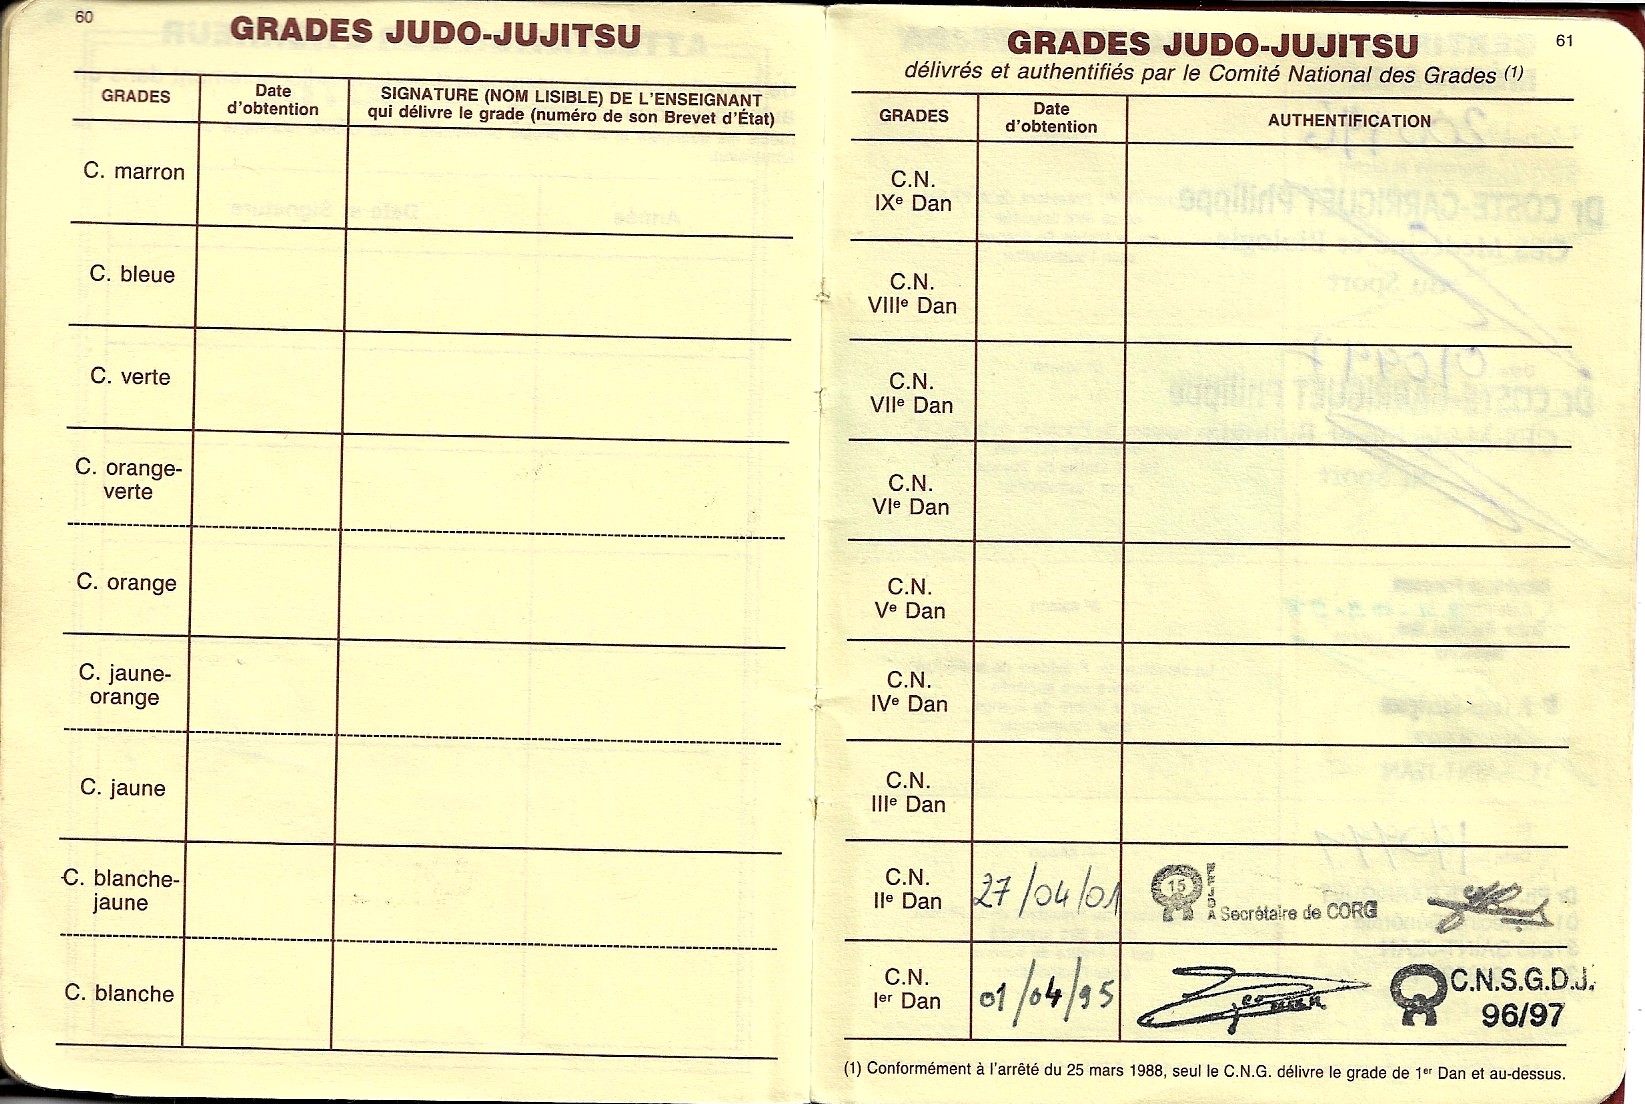 60
GRADES JUDO-JUJITSU
GRADES
Date
d'obtention
SIGNATURE (NOM LISIBLE) DE L'ENSEIGNANT
qui délivre le grade (numéro de son Brevet d'État)
C. marron
C. bleue
C. verte
C. orange-
verte
C. orange
C. jaune-
orange
C. jaune
C. blanche-
jaune
C. blanche
61
GRADES JUDO-JUJITSU
délivrés et authentifiés par le Comité National des Grades (1)
GRADES
Date
d'obtention
AUTHENTIFICATION
C.N.
IXe Dan
C.N.
VIIIe Dan
C.N.
VIIe Dan
C.N.
VIe Dan
C.N.
Ve Dan
C.N.
IVe Dan
C.N.
IIIe Dan
C.N.
IIe Dan
27/04/01
15
Secrétaire de CORG
C.N.
Ier Dan
01/04/95
C.N.S.G.D.J.
96/97
(1) Conformément à l'arrêté du 25 mars 1988, seul le C.N.G. délivre le grade de 1er Dan et au-dessus.